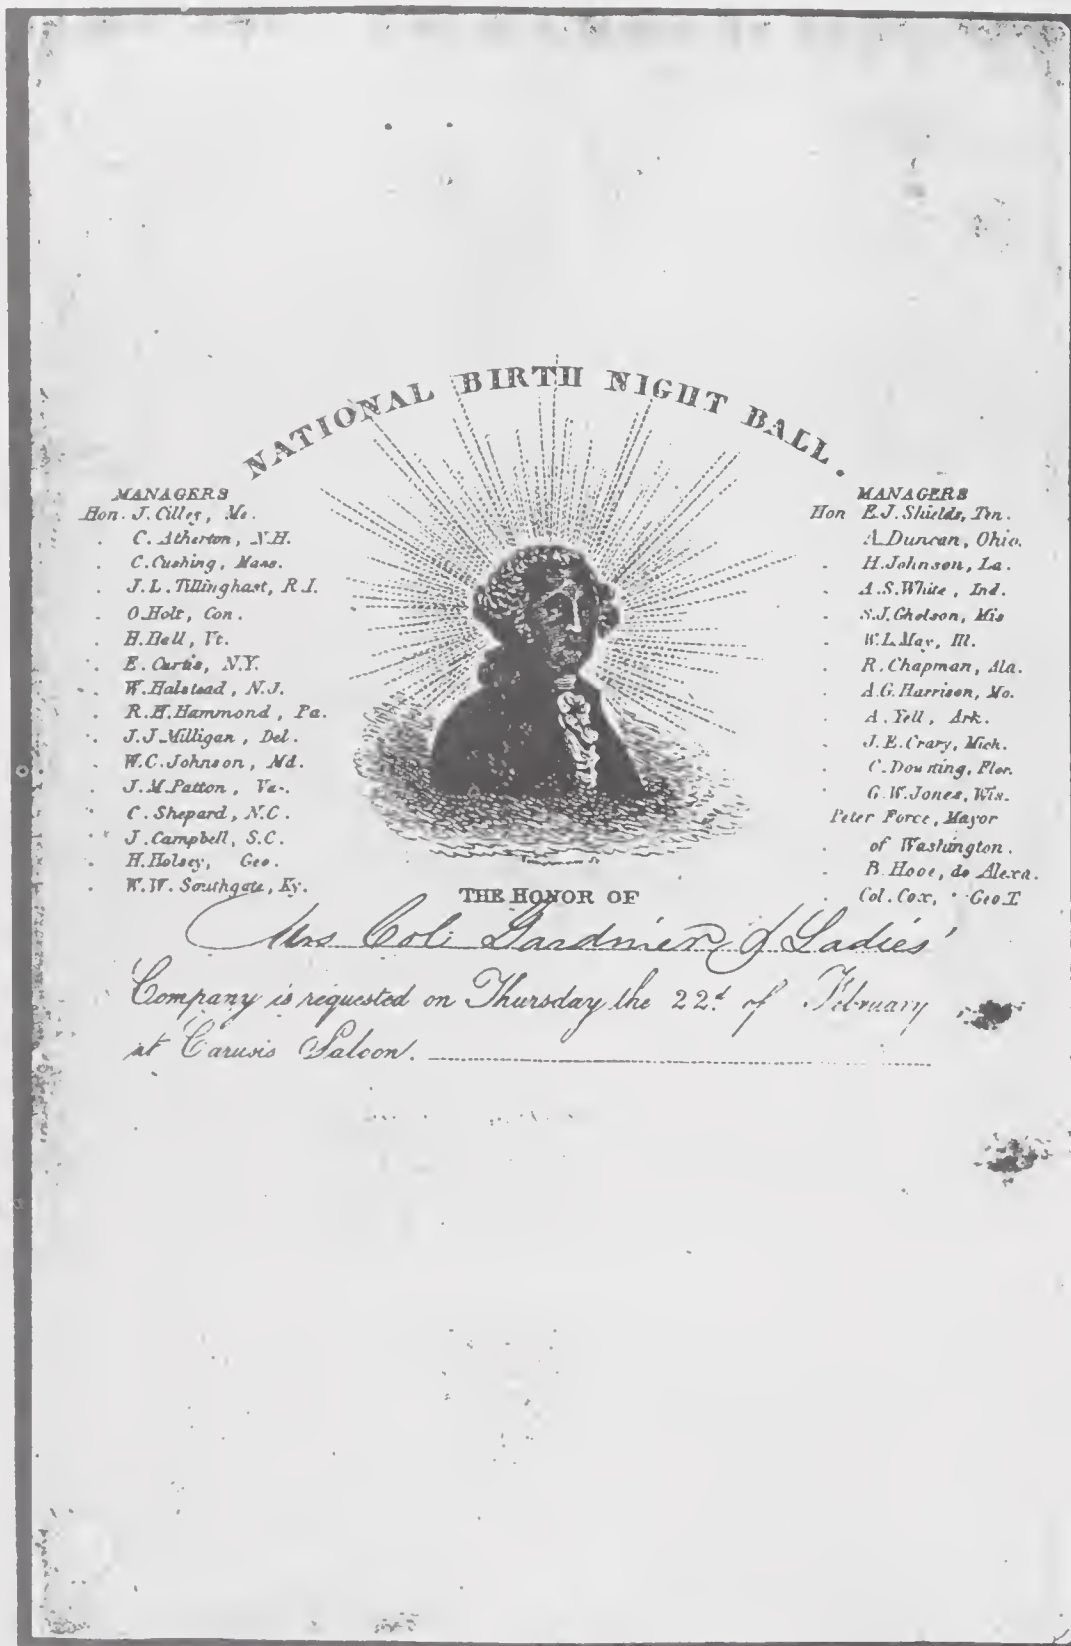 NATIONAL BIRTH NIGHT BALL.
MANAGERS
Hon. J. Cilley, Me.
C. Atherton, N.H.
C. Cushing, Mass.
J. L. Tillinghast, R.I.
O. Holt, Con.
H. Hall, Vt.
E. Curtis, N.Y.
W. Halstead, N.J.
R. H. Hammond, Pa.
J. J. Milligan, Del.
W. C. Johnson, Md.
J. M. Patton, Va.
C. Shepard, N.C.
J. Campbell, S.C.
H. Holsey, Geo.
W. W. Southgate, Ky.
MANAGERS
Hon E. J. Shields, Ten.
A. Duncan, Ohio.
H. Johnson, La.
A. S. White, Ind.
S. J. Gholson, Mis
W. L. May, Ill.
R. Chapman, Ala.
A. G. Harrison, Mo.
A. Yell, Ark.
J. E. Crary, Mich.
C. Downing, Flor.
G. W. Jones, Wis.
Peter Force, Mayor
of Washington.
B. Hooe, do Alexa.
Col. Cox, " Geo T.
THE HONOR OF
Mrs Col. Gardiner & Ladies'
Company is requested on Thursday the 22d. of February
at Carusis Saloon.